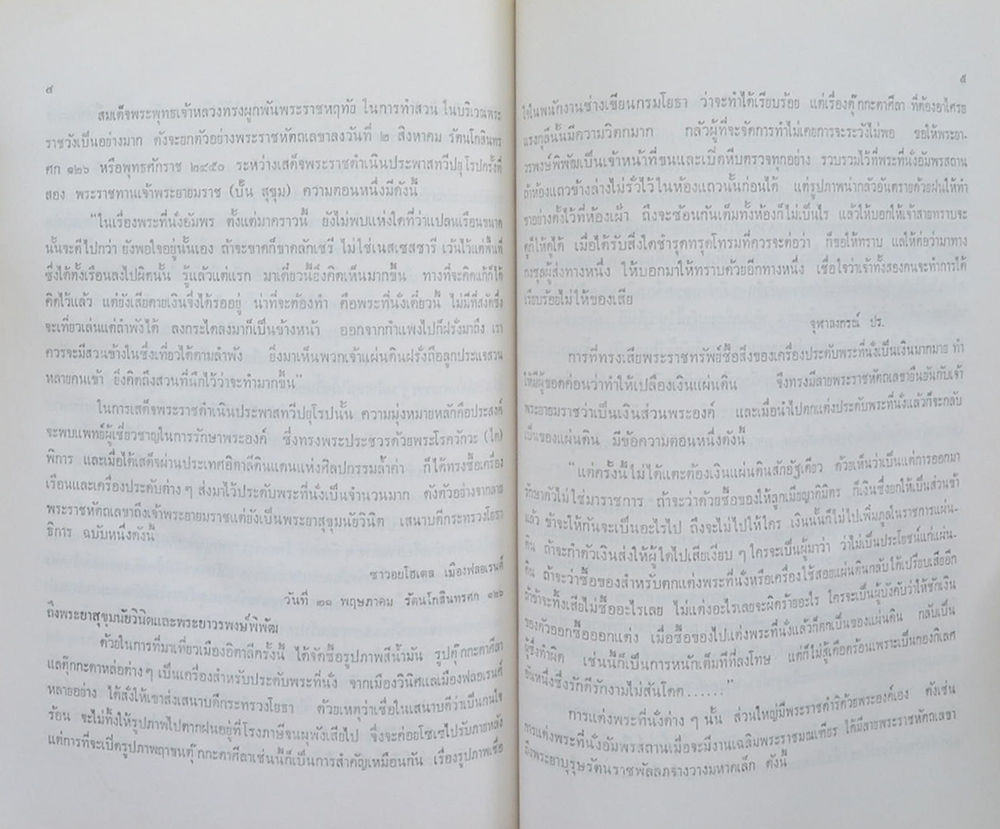 ๔
สมเด็จพระพุทธเจ้าหลวงทรงผูกพันพระราชหฤทัย ในการทำสวน ในบริเวณพระ
ราชวังเป็นอย่างมาก ดังจะยกตัวอย่างพระราชหัตถเลขาลงวันที่ ๒ สิงหาคม รัตนโกสินทร
ศก ๑๒๖ หรือพุทธศักราช ๒๔๕๐ ระหว่างเสด็จพระราชดำเนินประพาสทวีปยุโรปครั้งที่
สอง พระราชทานเจ้าพระยายมราช (ปั้น สุขุม) ความตอนหนึ่งมีดังนี้
"ในเรื่องพระที่นั่งอัมพร ตั้งแต่มาคราวนี้ ยังไม่พบแห่งใดที่ว่าแปลนเรือนขนาด
นั้นจะดีไปกว่า ยังพอใจอยู่นั้นเอง ถ้าจะขาดก็ขาดลักเชรี ไม่ใช่เนสเซสซารี เว้นไว้แต่พื้นที่
ซึ่งได้ตั้งเรือนลงไปผิดนั้น รู้แล้วแต่แรก มาเดี๋ยวนี้ยิ่งคิดเห็นมากขึ้น ทางที่จะคิดแก้ก็ได้
คิดไว้แล้ว แต่ยังเสียดายเงินจึงได้รออยู่ น่าที่จะต้องทำ คือพระที่นั่งเดี๋ยวนี้ ไม่มีที่สงัดซึ่ง
จะเที่ยวเล่นแต่ลำพังได้ ลงกระไดลงมาก็เป็นข้างหน้า ออกจากกำแพงไปก็ฝรั่งมาถึง เรา
ควรจะมีสวนข้างในซึ่งเที่ยวได้ตามลำพัง ยิ่งมาเห็นพวกเจ้าแผ่นดินฝรั่งถือลูกประแจสวน
หลายคนเข้า ยิ่งคิดถึงสวนที่นึกไว้ว่าจะทำมากขึ้น"
ในการเสด็จพระราชดำเนินประพาสทวีปยุโรปนั้น ความมุ่งหมายหลักคือประสงค์
จะพบแพทย์ผู้เชี่ยวชาญในการรักษาพระองค์ ซึ่งทรงพระประชวรด้วยพระโรควักกะ (ไต)
พิการ และเมื่อได้เสด็จผ่านประเทศอิตาลีดินแดนแห่งศิลปกรรมล้ำค่า ก็ได้ทรงซื้อเครื่อง
เรือนและเครื่องประดับต่าง ๆ ส่งมาไว้ประดับพระที่นั่งเป็นจำนวนมาก ดังตัวอย่างจากลาย
พระราชหัตถเลขาถึงเจ้าพระยายมราชแต่ยังเป็นพระยาสุขุมนัยวินิต เสนาบดีกระทรวงโยธา
ธิการ ฉบับหนึ่งดังนี้
ซาวอยโฮเตล เมืองฟลอเรนศ์
วันที่ ๒๑ พฤษภาคม รัตนโกสินทรศก ๑๒๖
ถึงพระยาสุขุมนัยวินิตและพระยาวรพงษ์พิพัฒ
ด้วยในการที่มาเที่ยวเมืองอิตาลีครั้งนี้ ได้จัดซื้อรูปภาพสีน้ำมัน รูปตุ๊กกะตาศีลา
แลตุ๊กกะตาหล่อต่างๆ เป็นเครื่องสำหรับประดับพระที่นั่ง จากเมืองวินิศแลเมืองฟลอเรนศ์
หลายอย่าง ได้สั่งให้เขาส่งเสนาบดีกระทรวงโยธา ด้วยเหตุว่าเชื่อในเสนาบดีว่าเป็นกานใจ
ร้อน จะไม่ทิ้งให้รูปภาพไปตากฝนอยู่ที่โรงภาษีจนผุพังเสียไป จึงจะค่อยโซเซไปรับภายหลัง
แต่การที่จะเปิดรูปภาพฤาขนตุ๊กกะตาศีลาเช่นนี้ก็เป็นการสำคัญเหมือนกัน เรื่องรูปภาพเชื่อ
๕
ใจในพนักงานช่างเขียนกรมโยธา ว่าจะทำได้เรียบร้อย แต่เรื่องตุ๊กกะตาศีลา ที่ต้องอาไศรย
แรงกุลีนั้นมีความวิตกมาก กลัวผู้ที่จะจัดการทำไม่เคยการจะระวังไม่พอ ขอให้พระยา-
วรพงษ์พิพัฒเป็นเจ้าหน้าที่ขนและเปิดหีบตรวจทุกอย่าง รวบรวมไว้ที่พระที่นั่งอัมพรสถาน
ถ้าห้องแถวข้างล่างไม่รั่วไว้ในห้องแถวนั้นก่อนได้ แต่รูปภาพน่ากลัวอันตรายด้วยฝนให้ทำ
ขาอย่างตั้งไว้ที่ห้องเฝ้า ถึงจะซ้อนกันเต็มทั้งห้องก็ไม่เป็นไร แล้วให้บอกให้เจ้าสายทราบจะ
ดูก็ให้ดูได้ เมื่อได้รับสิ่งใดชำรุดทรุดโทรมที่ควรจะต่อว่า ก็ขอให้ทราบ แลให้ต่อว่ามาทาง
กงซุลผู้ส่งทางหนึ่ง ให้บอกมาให้ทราบด้วยอีกทางหนึ่ง เชื่อใจว่าเจ้าทั้งสองคนจะทำการได้
เรียบร้อยไม่ให้ของเสีย
จุฬาลงกรณ์ ปร.
การที่ทรงเสียพระราชทรัพย์ซื้อสิ่งของเครื่องประดับพระที่นั่งเป็นเงินมากมาย ทำ
ให้มีผู้ขอดค่อนว่าทำให้เปลืองเงินแผ่นดิน จึงทรงมีลายพระราชหัตถเลขายืนยันกับเจ้า
พระยายมราชว่าเป็นเงินส่วนพระองค์ และเมื่อนำไปตกแต่งประดับพระที่นั่งแล้วก็จะกลับ
เป็นของแผ่นดิน มีข้อความตอนหนึ่งดังนี้
"แต่ครั้งนี้ไม่ได้แตะต้องเงินแผ่นดินสักอัฐเดียว ด้วยเห็นว่าเป็นแต่การออกมา
รักษาตัวไม่ใช่มาราชการ ถ้าจะว่าด้วยซื้อของให้ลูกเมียญาติมิตร ก็เงินซึ่งยกให้เป็นส่วนข้า
แล้ว ข้าจะให้กันจะเป็นอะไรไป ถึงจะไม่ไปให้ใคร เงินนั้นก็ไม่ไปเพิ่มภูลในราชการแผ่น-
ดิน ถ้าจะกำตัวเงินส่งให้ผู้ใดไปเสียเงียบ ๆ ใครจะเป็นผู้มาว่า ว่าไม่เป็นประโยชน์แก่แผ่น-
ดิน ถ้าจะว่าซื้อของสำหรับตกแต่งพระที่นั่งหรือเครื่องใช้สอยแผ่นดินกลับได้เปรียบเสียอีก
ถ้าข้าจะทิ้งเสียไม่ซื้ออะไรเลย ไม่แต่งอะไรเลยจะผิดร้ายอะไร ใครจะเป็นผู้บังคับว่าให้ชักเงิน
ของตัวออกซื้อออกแต่ง เมื่อซื้อของไปแต่งพระที่นั่งแล้วก็ตกเป็นของแผ่นดิน กลับเป็น
ผู้ซึ่งทำผิด เช่นนี้ก็เป็นการหนักเต็มทีที่ลงโทษ แต่ก็ไม่สู้เดือดร้อนเพราะเป็นกองกิเลศ
อันหนึ่งซึ่งรักดีรักงามไม่สันโดด......"
การแต่งพระที่นั่งต่าง ๆ นั้น ส่วนใหญ่มีพระราชดำริด้วยพระองค์เอง ดังเช่น
การแต่งพระที่นั่งอัมพรสถานเมื่อจะมีงานเฉลิมพระราชมณเฑียร ได้มีลายพระราชหัตถเลขา
ถึงพระยาบุรุษรัตนราชพัลลภจางวางมหาดเล็ก ดังนี้